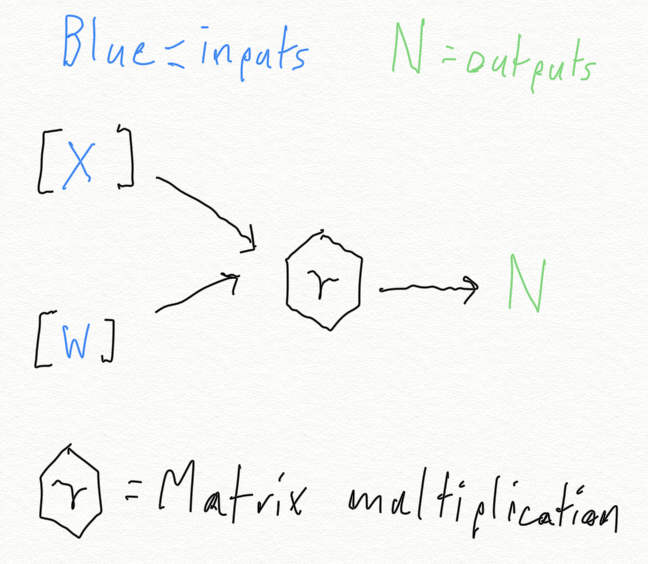 Blue = inputs N = outputs
[X]
r N
[W]
r = Matrix multiplication